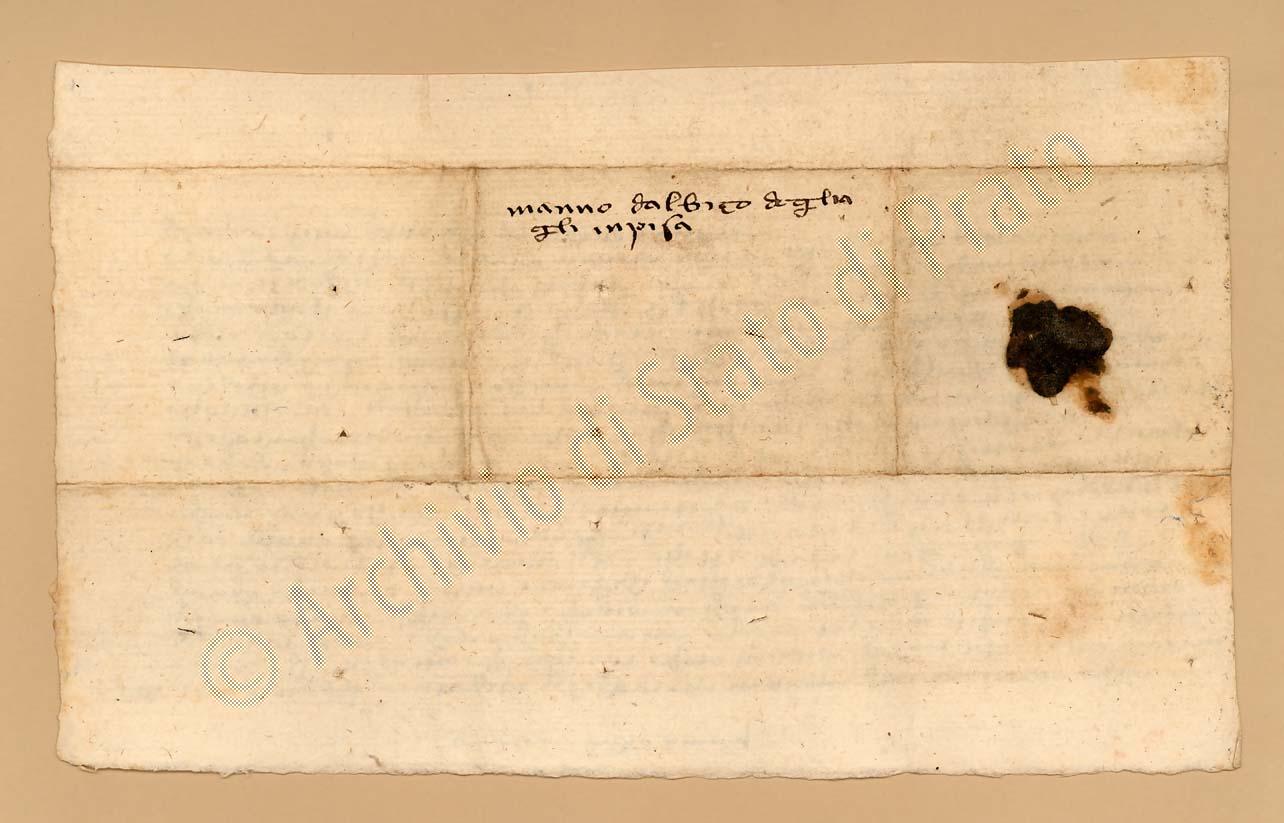 manno dalbiço deglia
gli inpisa
© Archivio di Stato di Prato